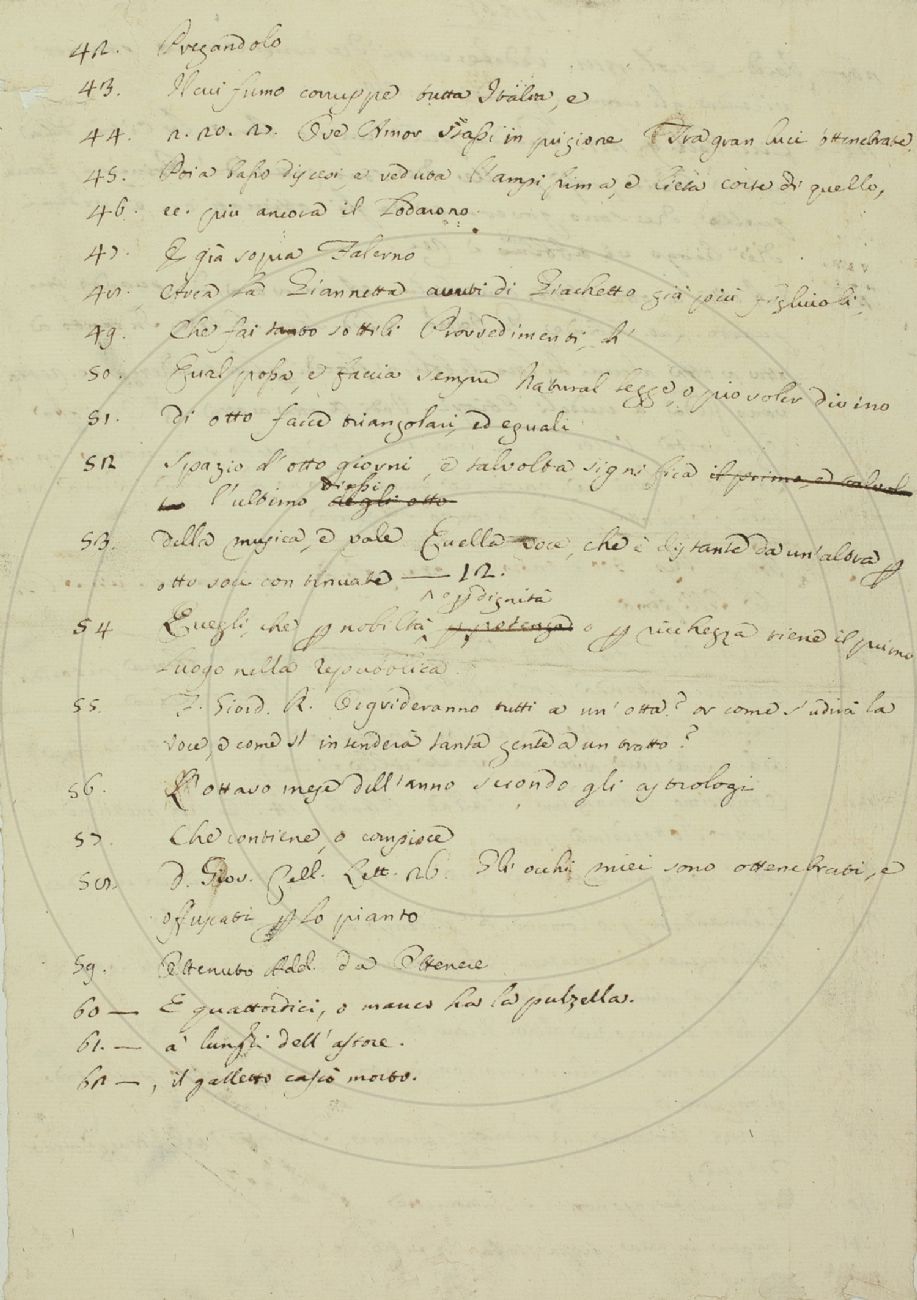 42. Pregandolo
43. Il cui fumo corruppe tutta Italia, e
44. 2. 20. 27. Ove Amor stassi in prigione Tra gran luci ottenebrate.
45. Poi a basso discesi, e veduta l'ampissima, e lieta corte di quello,
46. ec. più ancora il
47. E già sopra Falerno
48. Avea la Giannetta avuti di Giachetto già più figliuoli,
49. Che fai tanto sottili Provvedimenti, di
50. Qual possa, e faccia sempre Natural legge, o pio voler divino
51. di otto facce triangolari, ed eguali
52 Spazio d'otto giorni, e talvolta significa il primo, e talvol
ta l'ultimo degli otto dì essi
53. della musica, e vale Quella voce, che è distante da un'altra p
otto voci continuate — 12.
^ o p dignità
54 Quegli, che p nobiltà p potenza o p ricchezza tiene il primo
luogo nella repubblica
55. F. Giord. R. Os grideranno tutti a un'otta? or come s'udirà la
voce, e come si intenderà tanta gente a un tratto?
56. L'ottavo mese dell'anno secondo gli astrologi
57. Che contiene, o compisce
58. d. Giov. Cell. Lett. 26. Gli occhi miei sono ottenebrati, e
offuscati p lo pianto
59. Ottenuto Add. da Ottenere
60 — E quattordici, o manco ha la pulzella.
61. — a' lunghi dell'astore.
62 —, il galletto cascò morto.